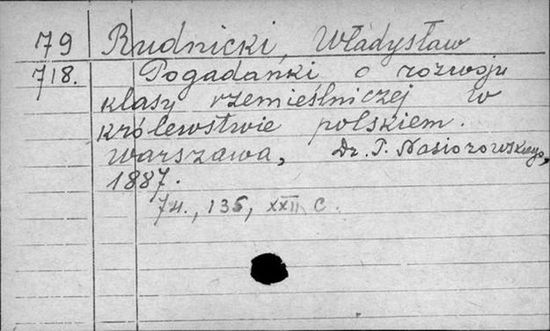 79 Rudnicki, Władysław
718. Pogadanki o rozwoju
klasy rzemieślniczej w
królewstwie polskiem.
Warszawa, Dr. T. Nasiorowskiego,
1887.
74., 135, XXII c.